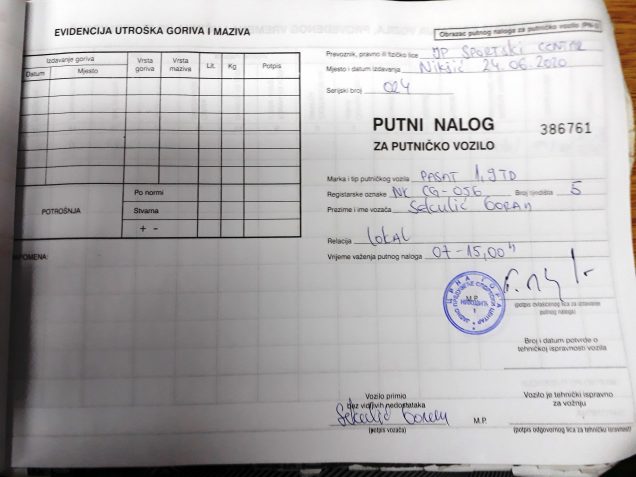 EVIDENCIJA UTROŠKA GORIVA I MAZIVA
Izdavanje goriva
Datum
Mjesto
Vrsta goriva
Vrsta maziva
Lit.
Kg
Potpis
POTROŠNJA
Po normi
Stvarna
+ -
Obrazac putnog naloga za putničko vozilo (PN-)
Prevoznik, pravno ili fizičko lice JP SPORTSKI CENTAR
Mjesto i datum izdavanja Nikšić 24.06.2020
Serijski broj 024
PUTNI NALOG
ZA PUTNIČKO VOZILO
386761
Marka i tip putničkog vozila PASAT 1,9TD
Registarske oznake NK CG-056 Broj sjedišta 5
Prezime i ime vozača Sekulić Goran
Relacija Lokal
Vrijeme važenja putnog naloga 07-15,00 h
M.P.
(potpis ovlašćenog lica za izdavanje
putnog naloga)
Broj i datum potvrde o
tehničkoj ispravnosti vozila
Vozilo primio
bez vidljivih nedostataka
Sekulić Goran
(potpis vozača)
M.P.
Vozilo je tehnički ispravno
za vožnju
(potpis odgovornog lica za tehničku ispravnost)